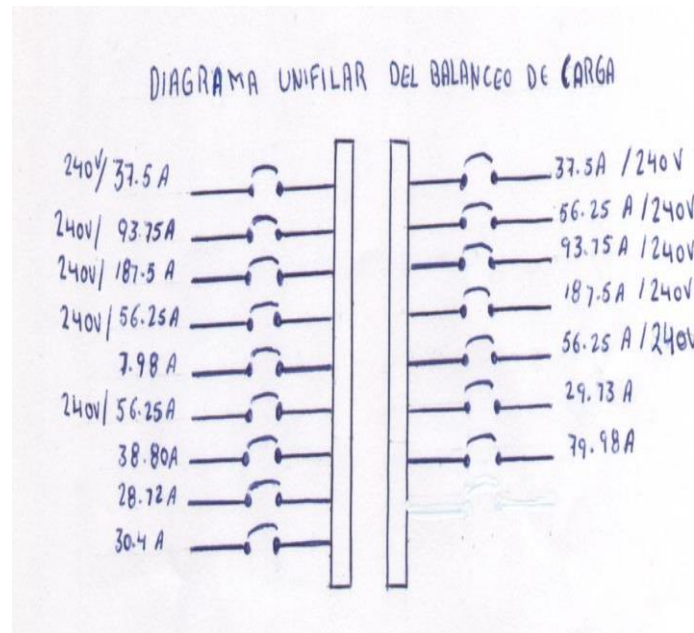 DIAGRAMA UNIFILAR DEL BALANCEO DE CARGA
240V/37.5 A
240V/ 93.75A
240V/ 187.5 A
240V/56.25A
7.98A
240V/56.25A
38.80A
28.72A
30.4 A
37.5A /240V
56.25 A/240V
93.75A /240V
187.5A /240V
56.25 A /240V
29.73 A
79.98A